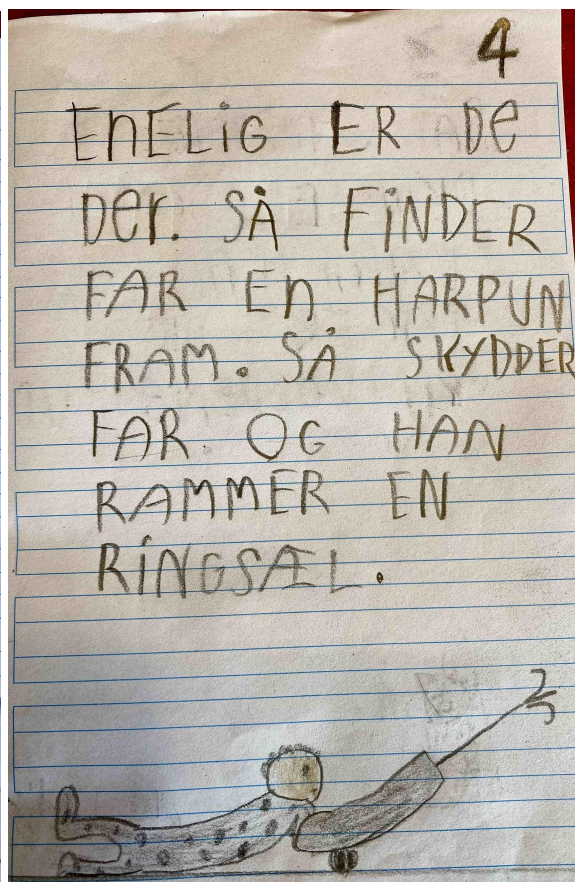 4
EnELiG ER De
Der. SÅ FiNDER
FAR En HARPUN
FRAM. SÅ SKYDDER
FAR OG HAN
RAMMER EN
RiNGSÆL.